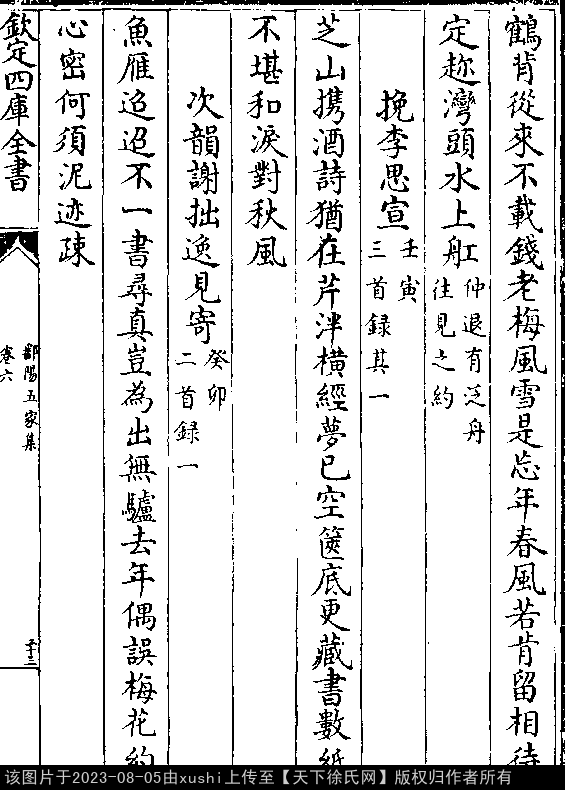 鶴背從來不載錢老梅風雪是忘年春風若肯留相待
定趂灣頭水上舟工仲退有泛舟
往見之約
挽李思宣壬寅
三首録其一
芝山携酒詩猶在芹泮橫經夢已空篋底更藏書數紙
不堪和淚對秋風
次韻謝拙逸見寄癸卯
二首録一
魚雁迢迢不一書尋真豈為出無驢去年偶誤梅花約
心密何須泥迹疎
欽定四庫全書
鄱陽五家集
卷六
十三
该图片于2023-08-05由xushi上传至【天下徐氏网】版权归作者所有